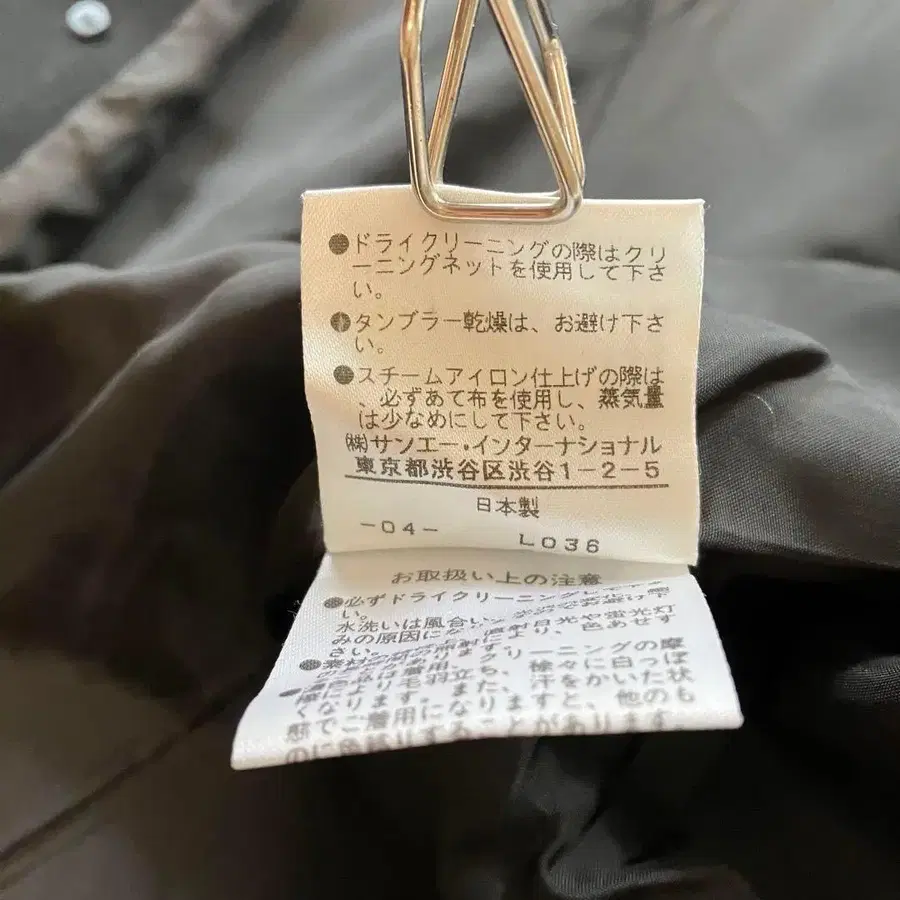 ●ドライクリーニングの際はクリ
ーニングネットを使用して下さ
い。
●タンブラー乾燥は、お避け下さ
い。
●スチームアイロン仕上げの際は
、必ずあて布を使用し、蒸気量
は少なめにして下さい。
㈱サンエー・インターナショナル
東京都渋谷区渋谷1-2-5
日本製
-04- L036
お取扱い上の注意
●必ずドライクリーニングして下さ
い。
水洗いは風合い
みの原因になり 直射日光や蛍光灯
さい。 照射により、色あせす
ります。
クリーニングの摩
擦により毛羽立ち、徐々に白っぽ
くなります。また、汗をかいた状
態でご着用になりますと、他のも
のに色移りすることがあります。